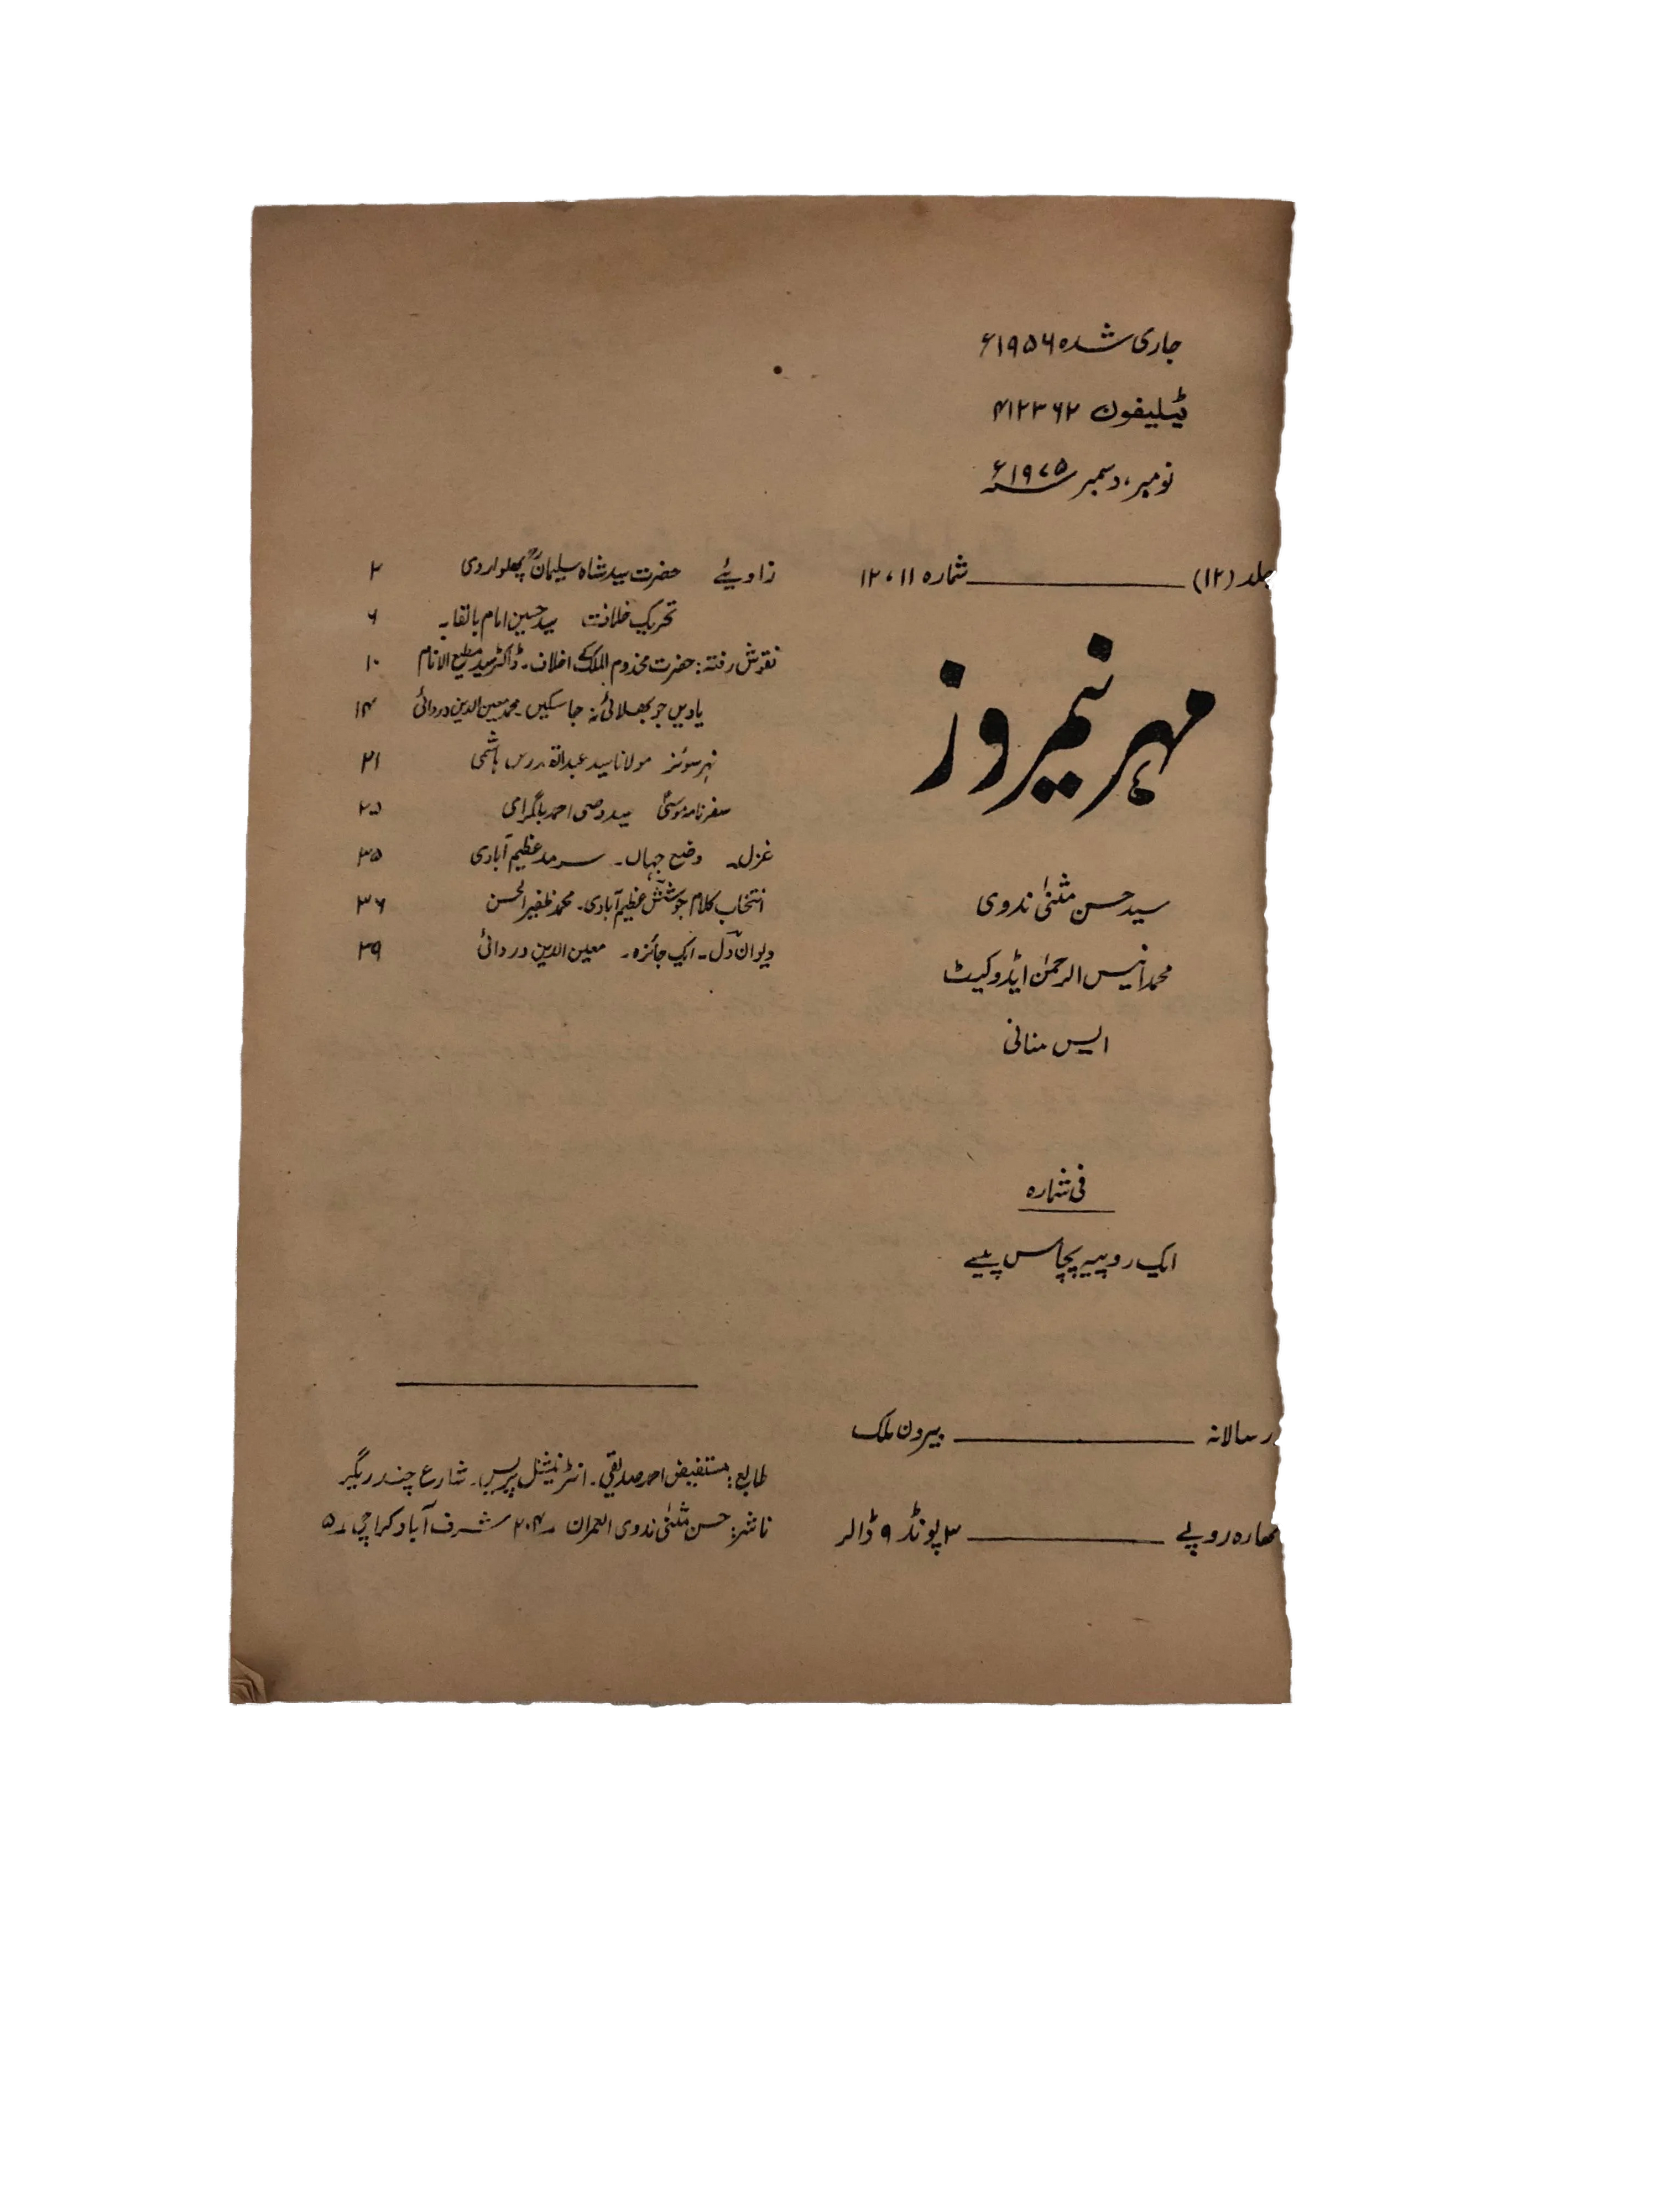 جاری شدہ ۱۹۵۶ء
ٹیلیفون ۴۱۲۳۶۲
نومبر، دسمبر ۱۹۷۵ء
جلد (۱۲) ــــــــ شمارہ ۱۱، ۱۲
مہر نیمروز
سید حسن مثنیٰ ندوی
محمد انیس الرحمٰن ایڈوکیٹ
ایس منانی
فی شمارہ
ایک روپیہ پچاس پیسے
سالانہ ــــــــ بیرون ملک
روپے ــــــــ ۳ پونڈ ۹ ڈالر
زاویئے حضرت سید شاہ سلیمانؒ پھلواروی ۲
تحریک خلافت سید حسین امام بالقابہ ۶
نقوش رفتہ: حضرت مخدوم الملک کے اخلاف۔ ڈاکٹر سید مطیع الامام ۱۰
یادیں جو بھلائی نہ جا سکیں۔ محمد معین الدین دردائی ۱۴
نہر سوئز مولانا سید عبدالقدوس ہاشمی ۲۱
سفرنامہ موسیٰ سید وصی احمد بلگرامی ۲۵
غزل۔ وضع جہاں۔ سرمد عظیم آبادی ۳۵
انتخاب کلام جوشش عظیم آبادی۔ محمد ظفیر الحسن ۳۶
دیوان دل۔ ایک جائزہ۔ معین الدین دردائی ۳۹
طابع: مستفیض احمد صدیقی۔ انٹرنیشنل پریس۔ شارع چندریگر
ناشر: حسن مثنیٰ ندوی العمران ۲۰۴ شرف آباد کراچی ۵